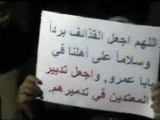 اللهم اجعل القذائف برداً
وسلاماً على أهلنا في
بابا عمرو، واجعل تدبير
المعتدين في تدميرهم.